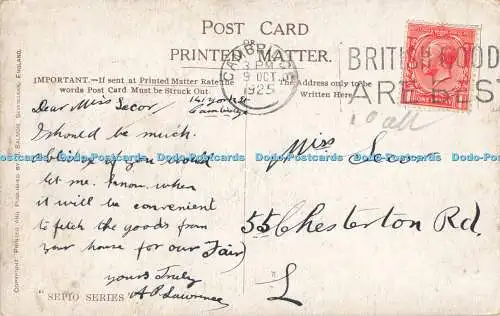 POST CARD
OR
PRINTED MATTER.
CAMBRIDGE
3 PM
9 OCT
1925
BRITISH GOODS
ARE BEST
IMPORTANT.—If sent at Printed Matter Rate the
words Post Card Must be Struck Out.
The Address only to be
Written Here
Dear Miss Secor,
Cambridge
I should be much
obliged if you would
let me know when
it will be convenient
to fetch the goods from
your house for our Fair)
yours Truly
A P Lawrence
"SEPIO SERIES"
Miss Secor
55 Chesterton Rd.
L
COPYRIGHT. PRINTED AND PUBLISHED BY J. SALMON, SEVENOAKS, ENGLAND.
Postcards Data
www.postcards-data.com